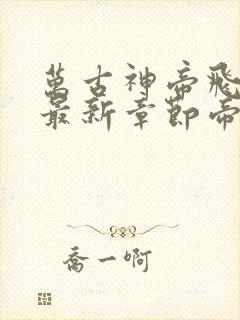 萬古神帝飛
最新章節帝
喬一啊